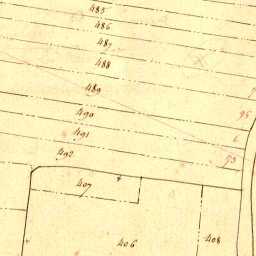 485
486
487
488
489
490
491
492
95
93
407
406
408